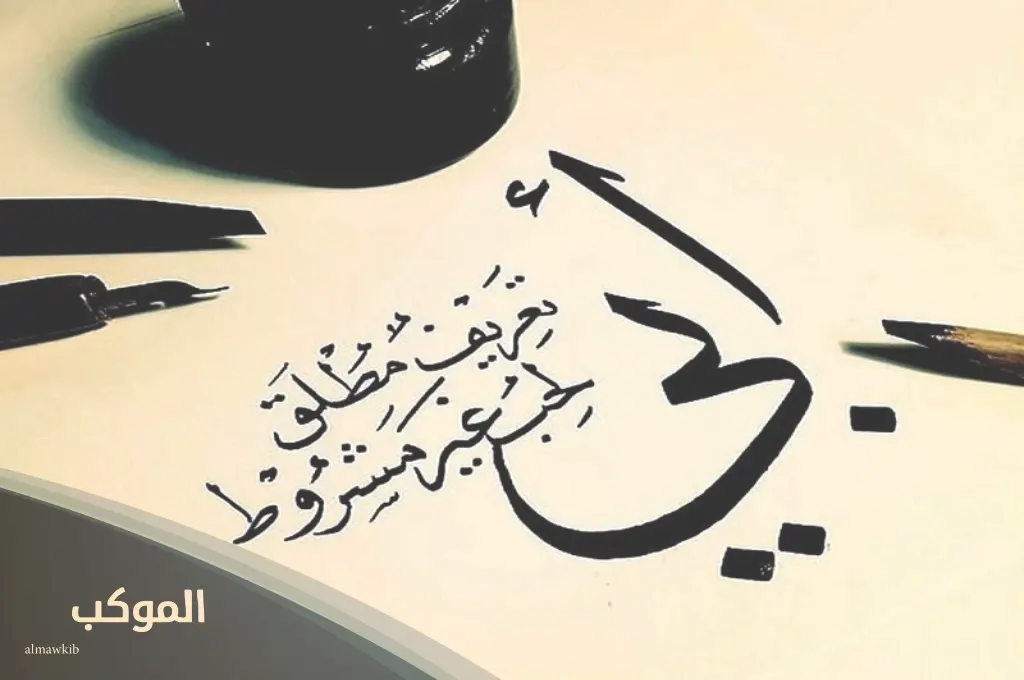 أبي
تعرِيف مُطْلَق
لِحُب غير مشرُوط
الموكب
almawkib